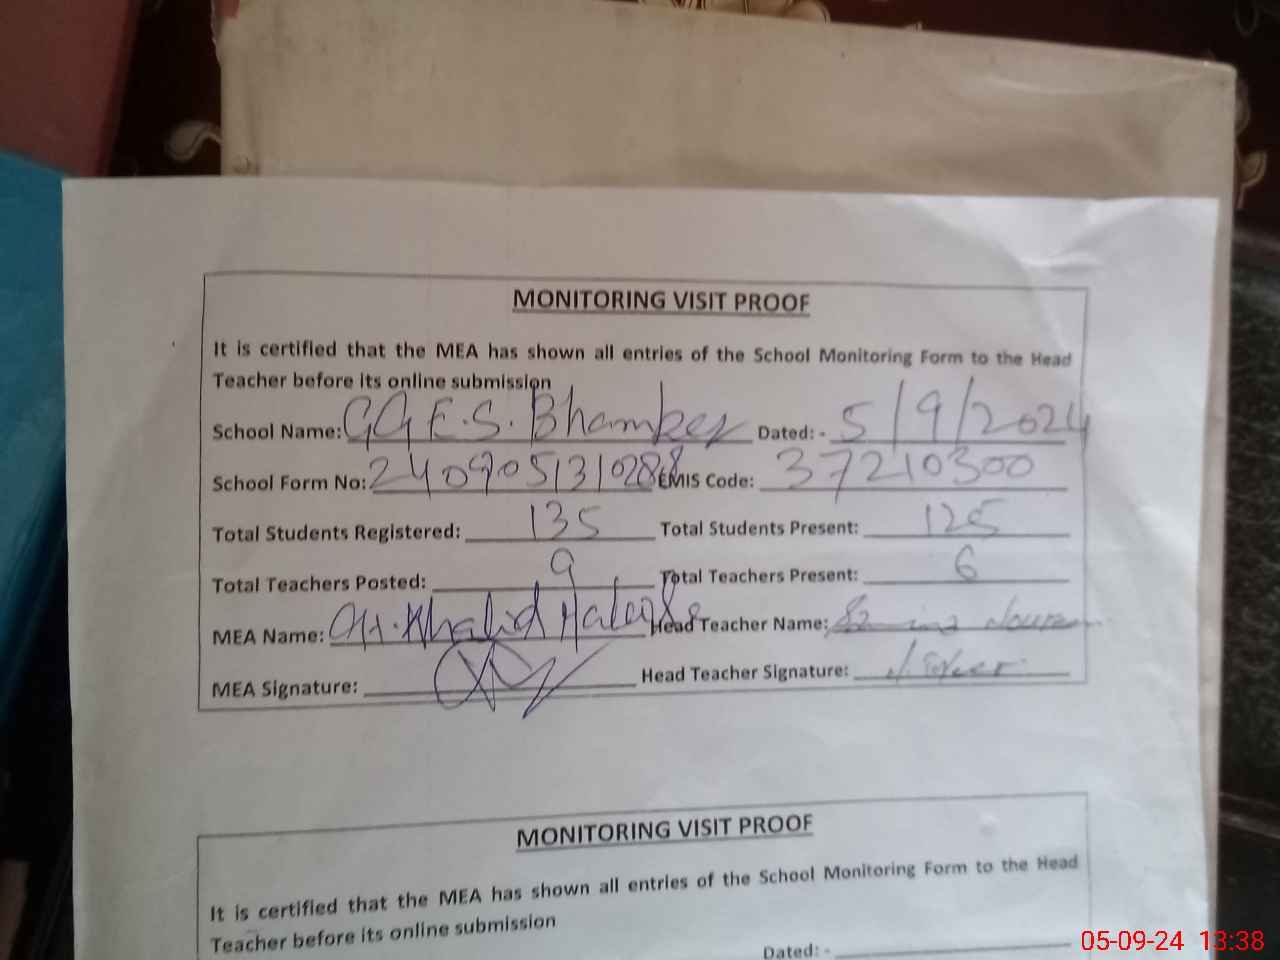 MONITORING VISIT PROOF
It is certified that the MEA has shown all entries of the School Monitoring Form to the Head
Teacher before its online submission
School Name: GGE.S. Bhamber Dated: - 5/9/2024
School Form No: EMIS Code: 37210300
Total Students Registered: 135 Total Students Present: 125
Total Teachers Posted: 9 Total Teachers Present: 6
MEA Name: Khalid Head Teacher Name:
MEA Signature: Head Teacher Signature:
MONITORING VISIT PROOF
It is certified that the MEA has shown all entries of the School Monitoring Form to the Head
Teacher before its online submission
Dated: -
05-09-24 13:38